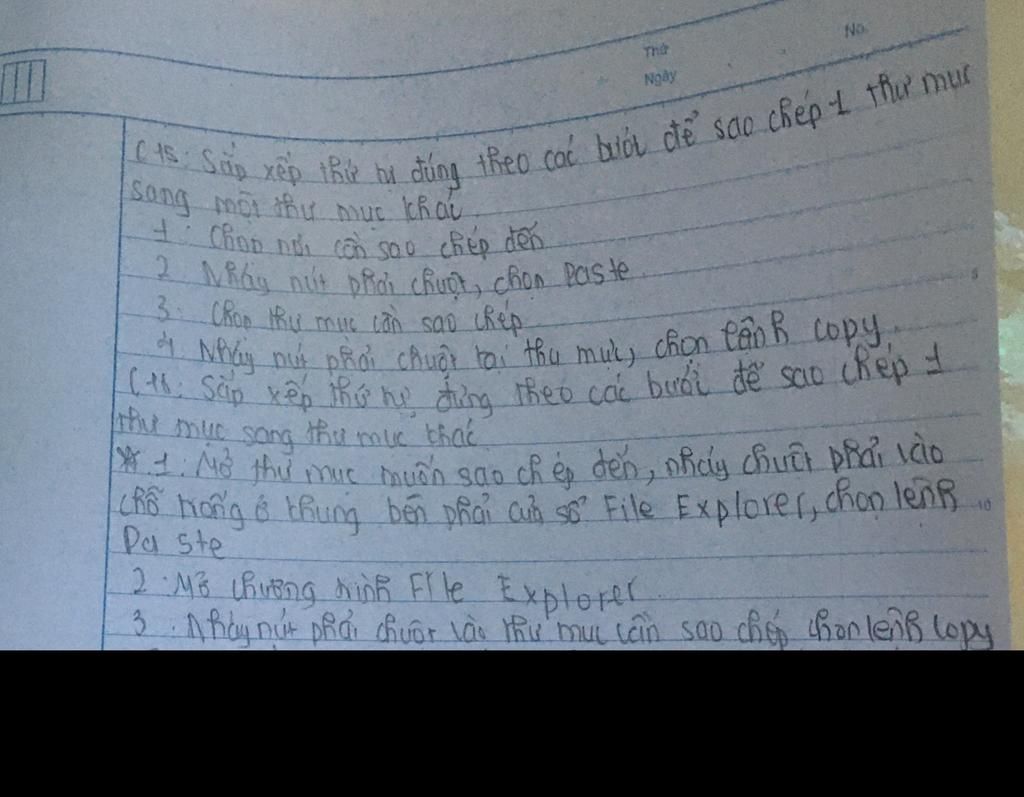 Thứ
No.
Ngày
C15: Sắp xếp thứ tự đúng theo các bước để sao chép 1 thư mục
sang một thư mục khác
1. Chọn nơi cần sao chép đến
2. Nháy nút phải chuột, chọn Paste
3. Chọn thư mục cần sao chép
4. Nháy nút phải chuột tại thư mục, chọn lệnh copy.
C16: Sắp xếp thứ tự đúng theo các bước để sao chép 1
thư mục sang thư mục khác
* 1. Mở thư mục muốn sao chép đến, nháy chuột phải vào
chỗ trống ở khung bên phải cửa sổ File Explorer, chọn lệnh
Paste
2. Mở chương trình File Explorer
3. Nháy nút phải chuột vào thư mục cần sao chép chọn lệnh Copy
5
10